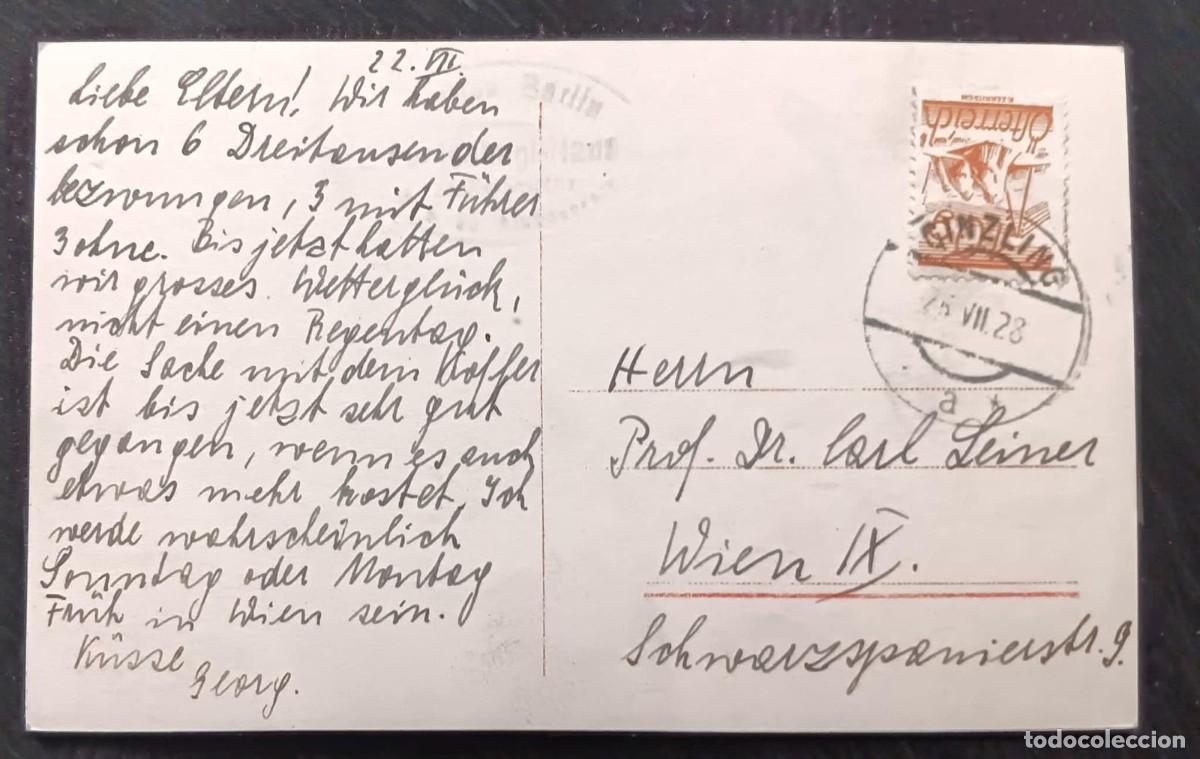 22. VII.
Liebe Eltern! Wir haben
schon 6 Dreitausender
bezwungen, 3 mit Führer
3 ohne. Bis jetzt hatten
wir grosses Wetterglück,
nicht einen Regentag.
Die Sache mit dem Koffer
ist bis jetzt sehr gut
gegangen, wenn es auch
etwas mehr kostet. Ich
werde wahrscheinlich
Sonntag oder Montag
Früh in Wien sein.
Küsse
Georg.
K. ZERRITSCH
Österreich
GINZLING
25. VII. 28
a *
Herrn
Prof. Dr. Carl Leiner
Wien IX.
Schwarzspanierstr. 9.
todocoleccion